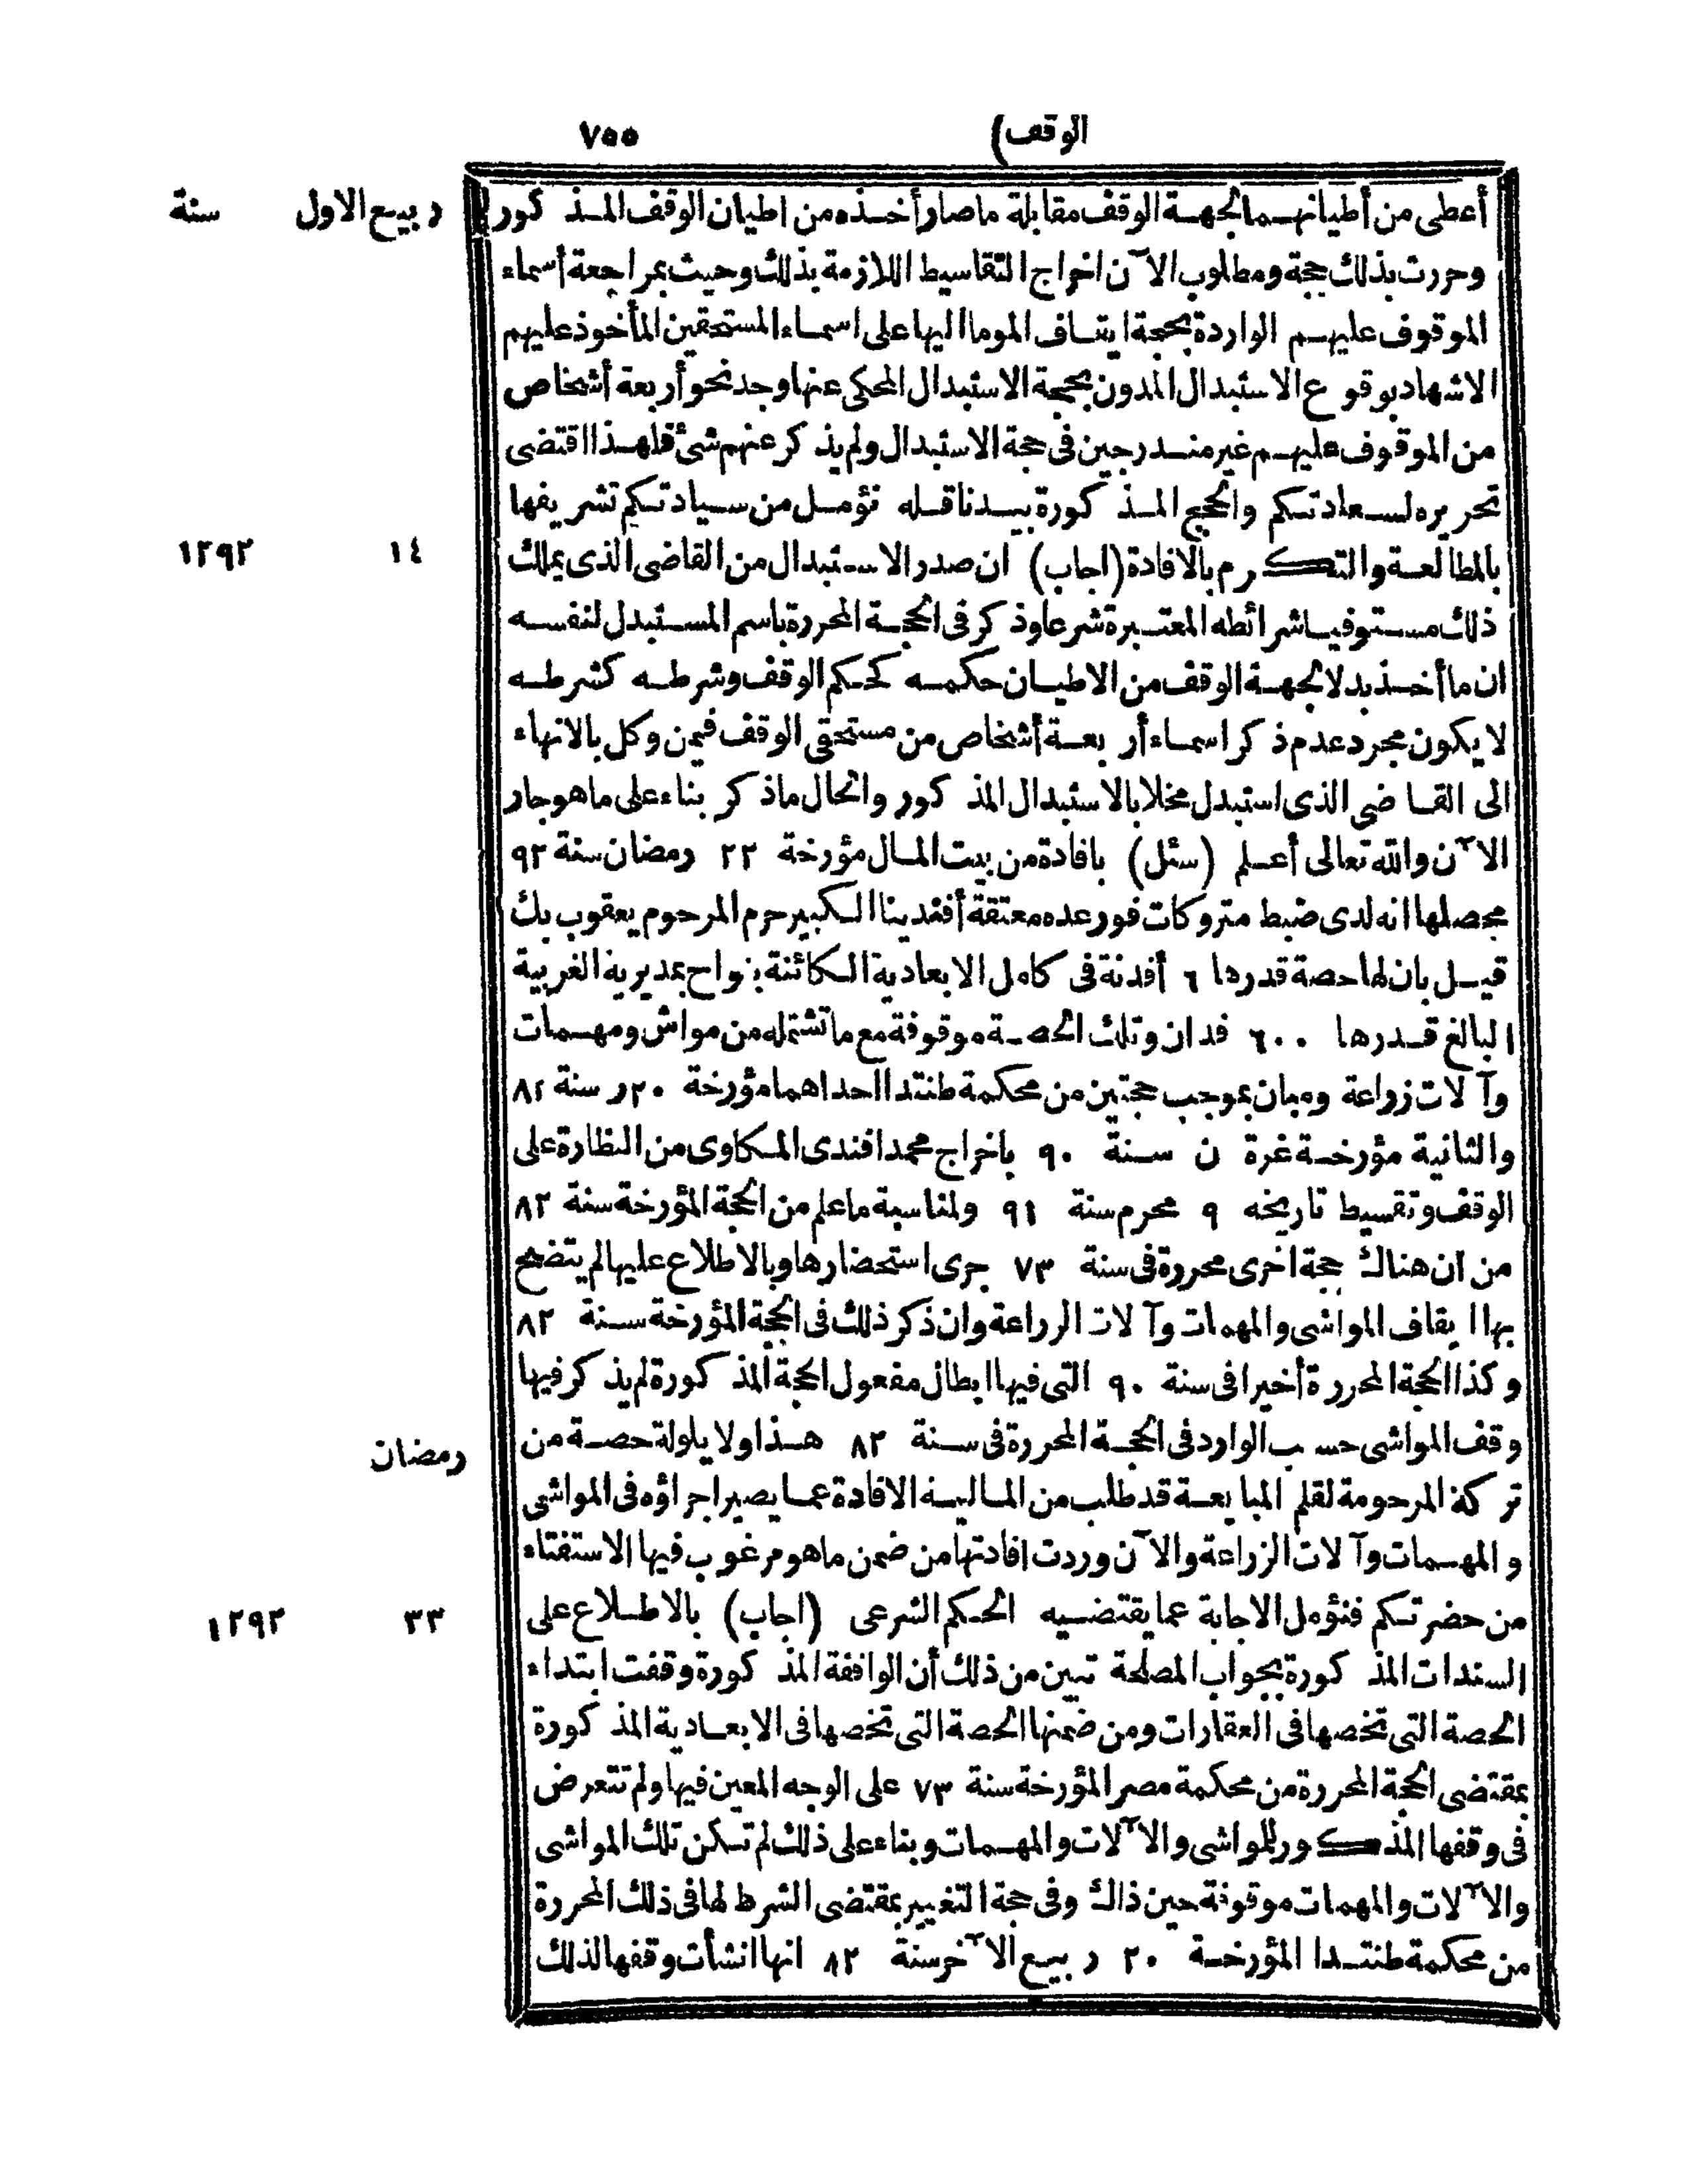 الوقف) ٧٥٥
أعطى من أطيانهما لجهة الوقف مقابلة ما صار أخذه من اطيان الوقف المذكور
ربيع الاول سنة
وحررت بذلك حجة ومطلوب الآن اخراج التقاسيط اللازمة بذلك وحيث بمراجعة أسماء
الموقوف عليهم الواردة بحجة ايقاف الموما اليها على اسماء المستحقين المأخوذ عليهم
الاشهاد بوقوع الاستبدال المدون بحجة الاستبدال المحكى عنها وجد نحو أربعة أشخاص
من الموقوف عليهم غير مندرجين فى حجة الاستبدال ولم يذكر عنهم شئ فلهذا اقتضى
تحريره لسعادتكم والحجج المذكورة بيد ناقله نؤمل من سيادتكم تشريفها
بالمطالعة والتكرم بالافادة (اجاب) ان صدر الاستبدال من القاضى الذى يملك
١٤ ١٢٩٢
ذلك مستوفيا شرائطه المعتبرة شرعا وذكر فى الحجة المحررة باسم المستبدل لنفسه
ان ما أخذ بدلا لجهة الوقف من الاطيان حكمه كحكم الوقف وشرطه كشرطه
لا يكون مجرد عدم ذكر اسماء أربعة أشخاص من مستحقى الوقف فيمن وكل بالانهاء
الى القاضى الذى استبدل مخلا بالاستبدال المذكور والحال ما ذكر بناء على ما هو جار
الآن والله تعالى أعلم (سئل) بافادة من بيت المال مؤرخة ٢٢ رمضان سنة ٩٢
محصلها انه لدى ضبط متروكات فورعده معتقة أفندينا الكبير حرم المرحوم يعقوب بك
قيل بان لها حصة قدرها ٦ أفدنة فى كامل الابعادية الكائنة بنواح بمديرية الغربية
البالغ قدرها ٦٠٠ فدان وتلك الحصة موقوفة مع ما تشتمله من مواش ومهمات
وآلات زراعة ومبان بموجب حجتين من محكمة طنتدا احداهما مؤرخة ٢٠ ر سنة ٨٢
والثانية مؤرخة غرة ن سنة ٩٠ باخراج محمد افندى المكاوى من النظارة على
الوقف وتقسيط تاريخه ٩ محرم سنة ٩١ ولمناسبة ما علم من الحجة المؤرخة سنة ٨٢
من ان هناك حجة اخرى محررة فى سنة ٧٣ جرى استحضارها وبالاطلاع عليها لم يتضح
بها ايقاف المواشى والمهمات وآلات الزراعة وان ذكر ذلك فى الحجة المؤرخة سنة ٨٢
وكذا الحجة المحررة أخيرا فى سنة ٩٠ التى فيها ابطال مفعول الحجة المذكورة لم يذكر فيها
وقف المواشى حسب الوارد فى الحجة المحررة فى سنة ٨٢ هذا ولايلولة حصة من
رمضان
تركة المرحومة لقلم المبايعة قد طلب من المالية الافادة عما يصير اجراؤه فى المواشى
والمهمات وآلات الزراعة والآن وردت افادتها من ضمن ما هو مرغوب فيها الاستفتاء
من حضرتكم فنؤمل الاجابة عما يقتضيه الحكم الشرعى (اجاب) بالاطلاع على
٢٣ ١٢٩٢
السندات المذكورة بجواب المصلحة تبين من ذلك أن الواقفة المذكورة وقفت ابتداء
الحصة التى تخصها فى العقارات ومن ضمنها الحصة التى تخصها فى الابعادية المذكورة
بمقتضى الحجة المحررة من محكمة مصر المؤرخة سنة ٧٣ على الوجه المعين فيها ولم تتعرض
فى وقفها المذكور للمواشى والآلات والمهمات وبناء على ذلك لم تكن تلك المواشى
والآلات والمهمات موقوفة حين ذاك وفى حجة التغيير بمقتضى الشرط لها فى ذلك المحررة
من محكمة طنتدا المؤرخة ٢٠ ربيع الآخر سنة ٨٢ انها انشأت وقفها لذلك